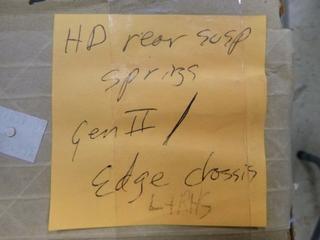 HD rear susp
springs
gen II /
Edge chassis
L+RHS